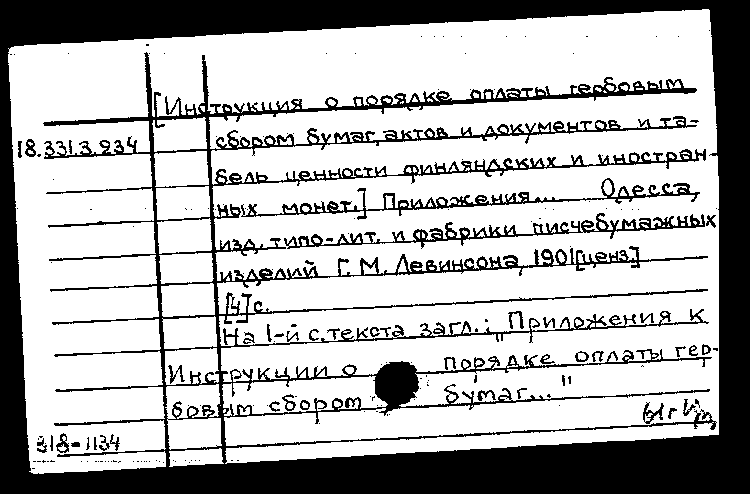 [Инструкция о порядке оплаты гербовым
18.331.3.234
сбором бумаг, актов и документов и та=
бель ценности финляндских и иностран-
ных монет.] Приложения... Одесса,
изд. типо-лит. и фабрики писчебумажных
изделий Г. М. Левинсона, 1901 [ценз.]
[4] с.
На 1-й с. текста загл.: "Приложения к
Инструкции о порядке оплаты гер-
бовым сбором бумаг..."
318-1134